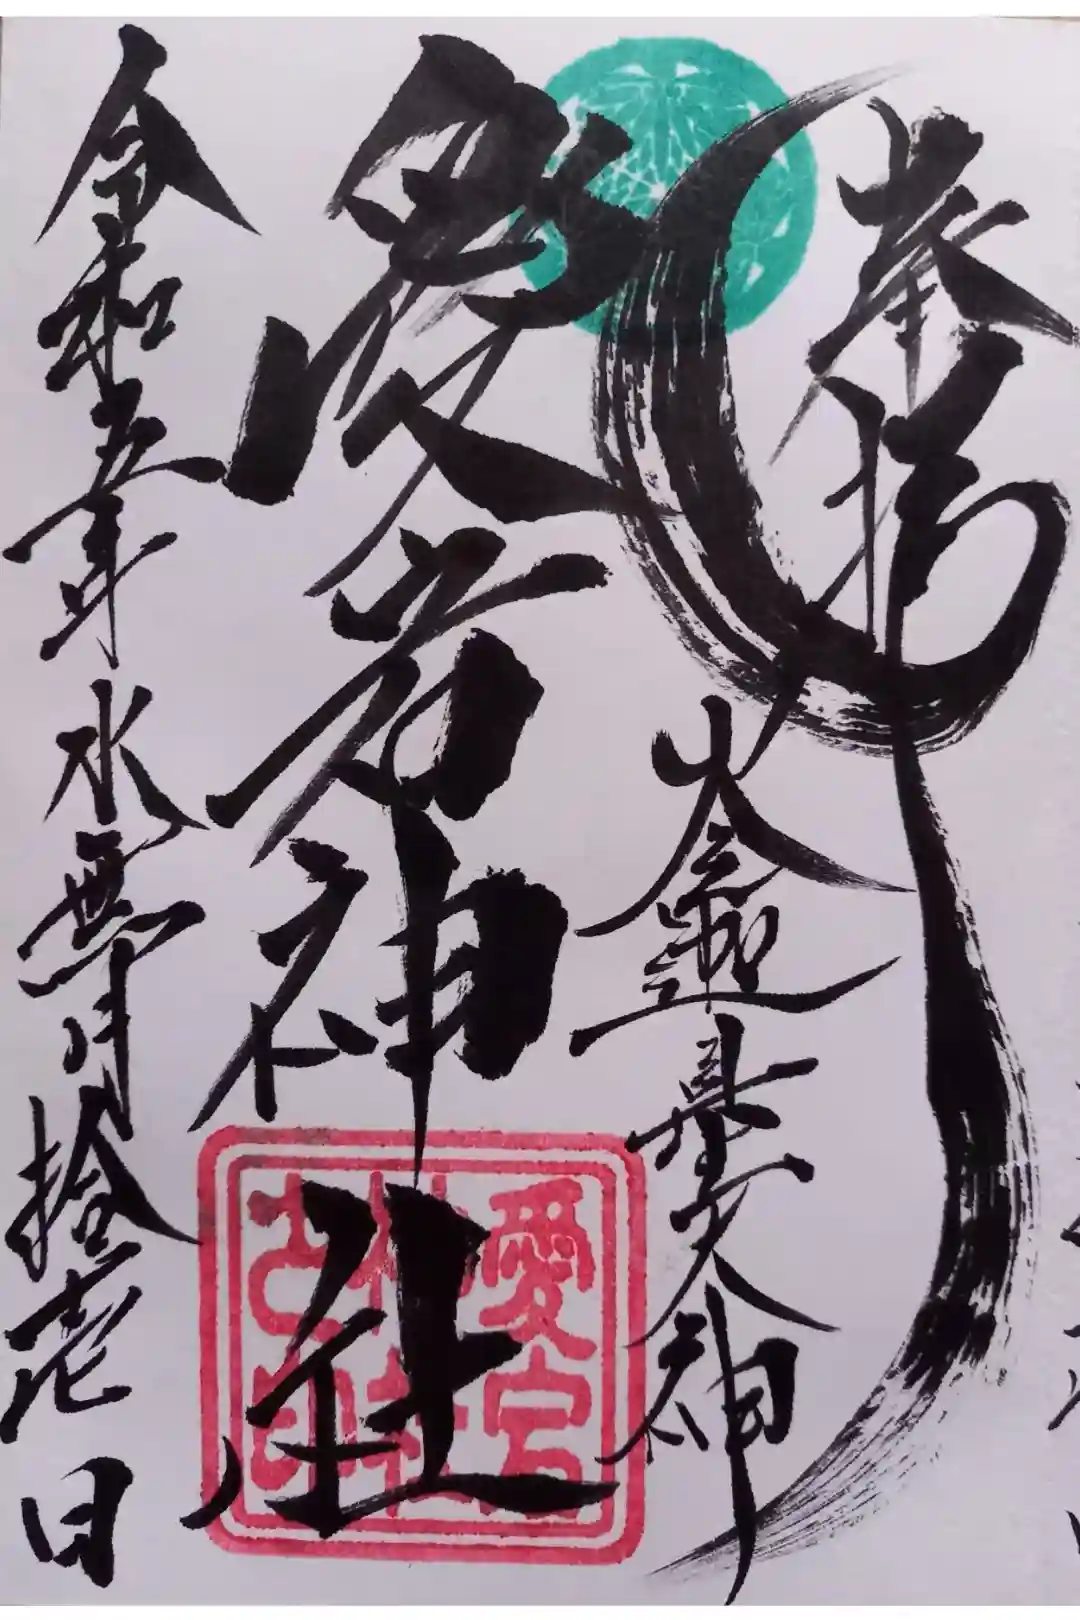 奉拝
大神
愛宕神社
愛宕
神社
之印
令和五年水無月拾壱日